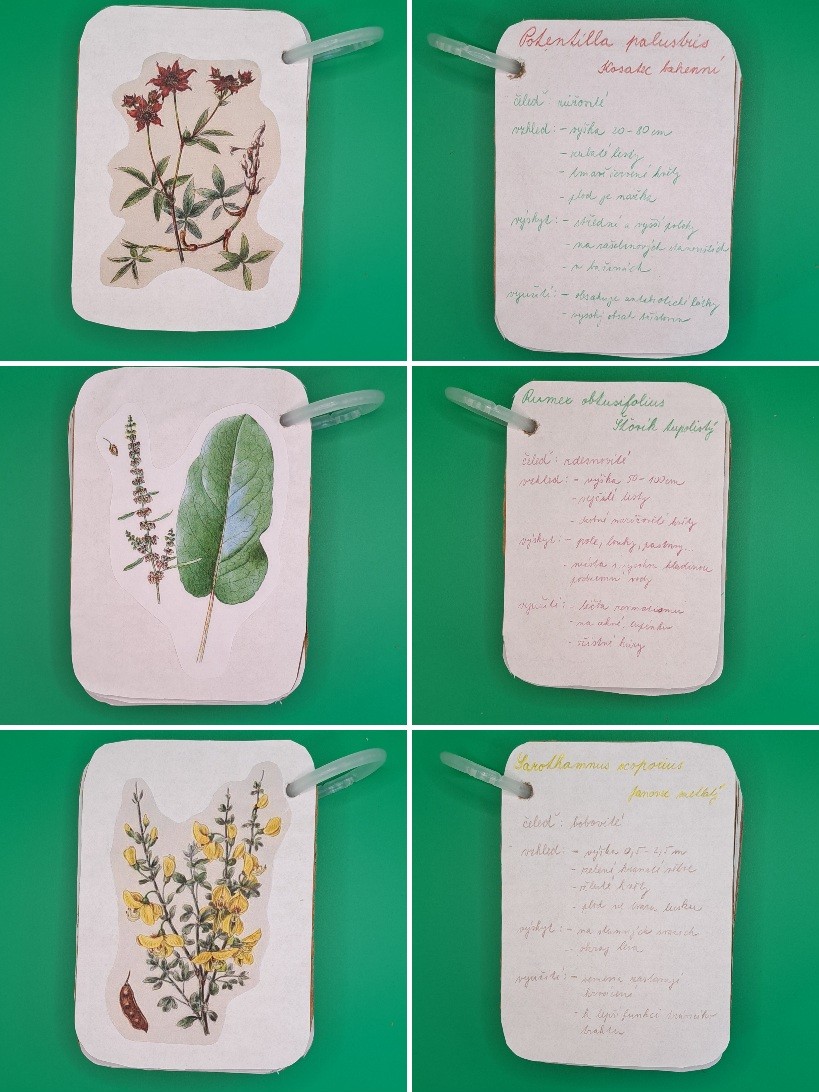 Potentilla palustris
Kosatec bahenní
čeleď růžovité
vzhled: - výška 20-80 cm
- zubaté listy
- tmavě červené květy
- plod je nažka
výskyt: - střední a vyšší polohy
- na rašelinových stanovištích
- v bažinách
využití: - obsahuje
- vysoký obsah tříslovin
Rumex obtusifolius
Šťovík tupolistý
čeleď: rdesnovité
vzhled: - výška 50-100cm
- vejčité listy
- narůžovělé květy
výskyt: - pole, louky, pastviny...
- místa s vysokou hladinou
podzemní vody
využití: - léčba revmatismu
- na ekzé, lupénku
- čistění kůry
Sarothamnus scoparius
Janovec metlatý
čeleď: bobovité
vzhled: - výška 0,5-2,5 m
- zelené hranaté větve
- žluté květy
- plod ve tvaru lusku
výskyt: - na slunných svazích
- okraj lesa
využití: - semena zastavují
krvácení
- k lepší funkci trávicího
traktu